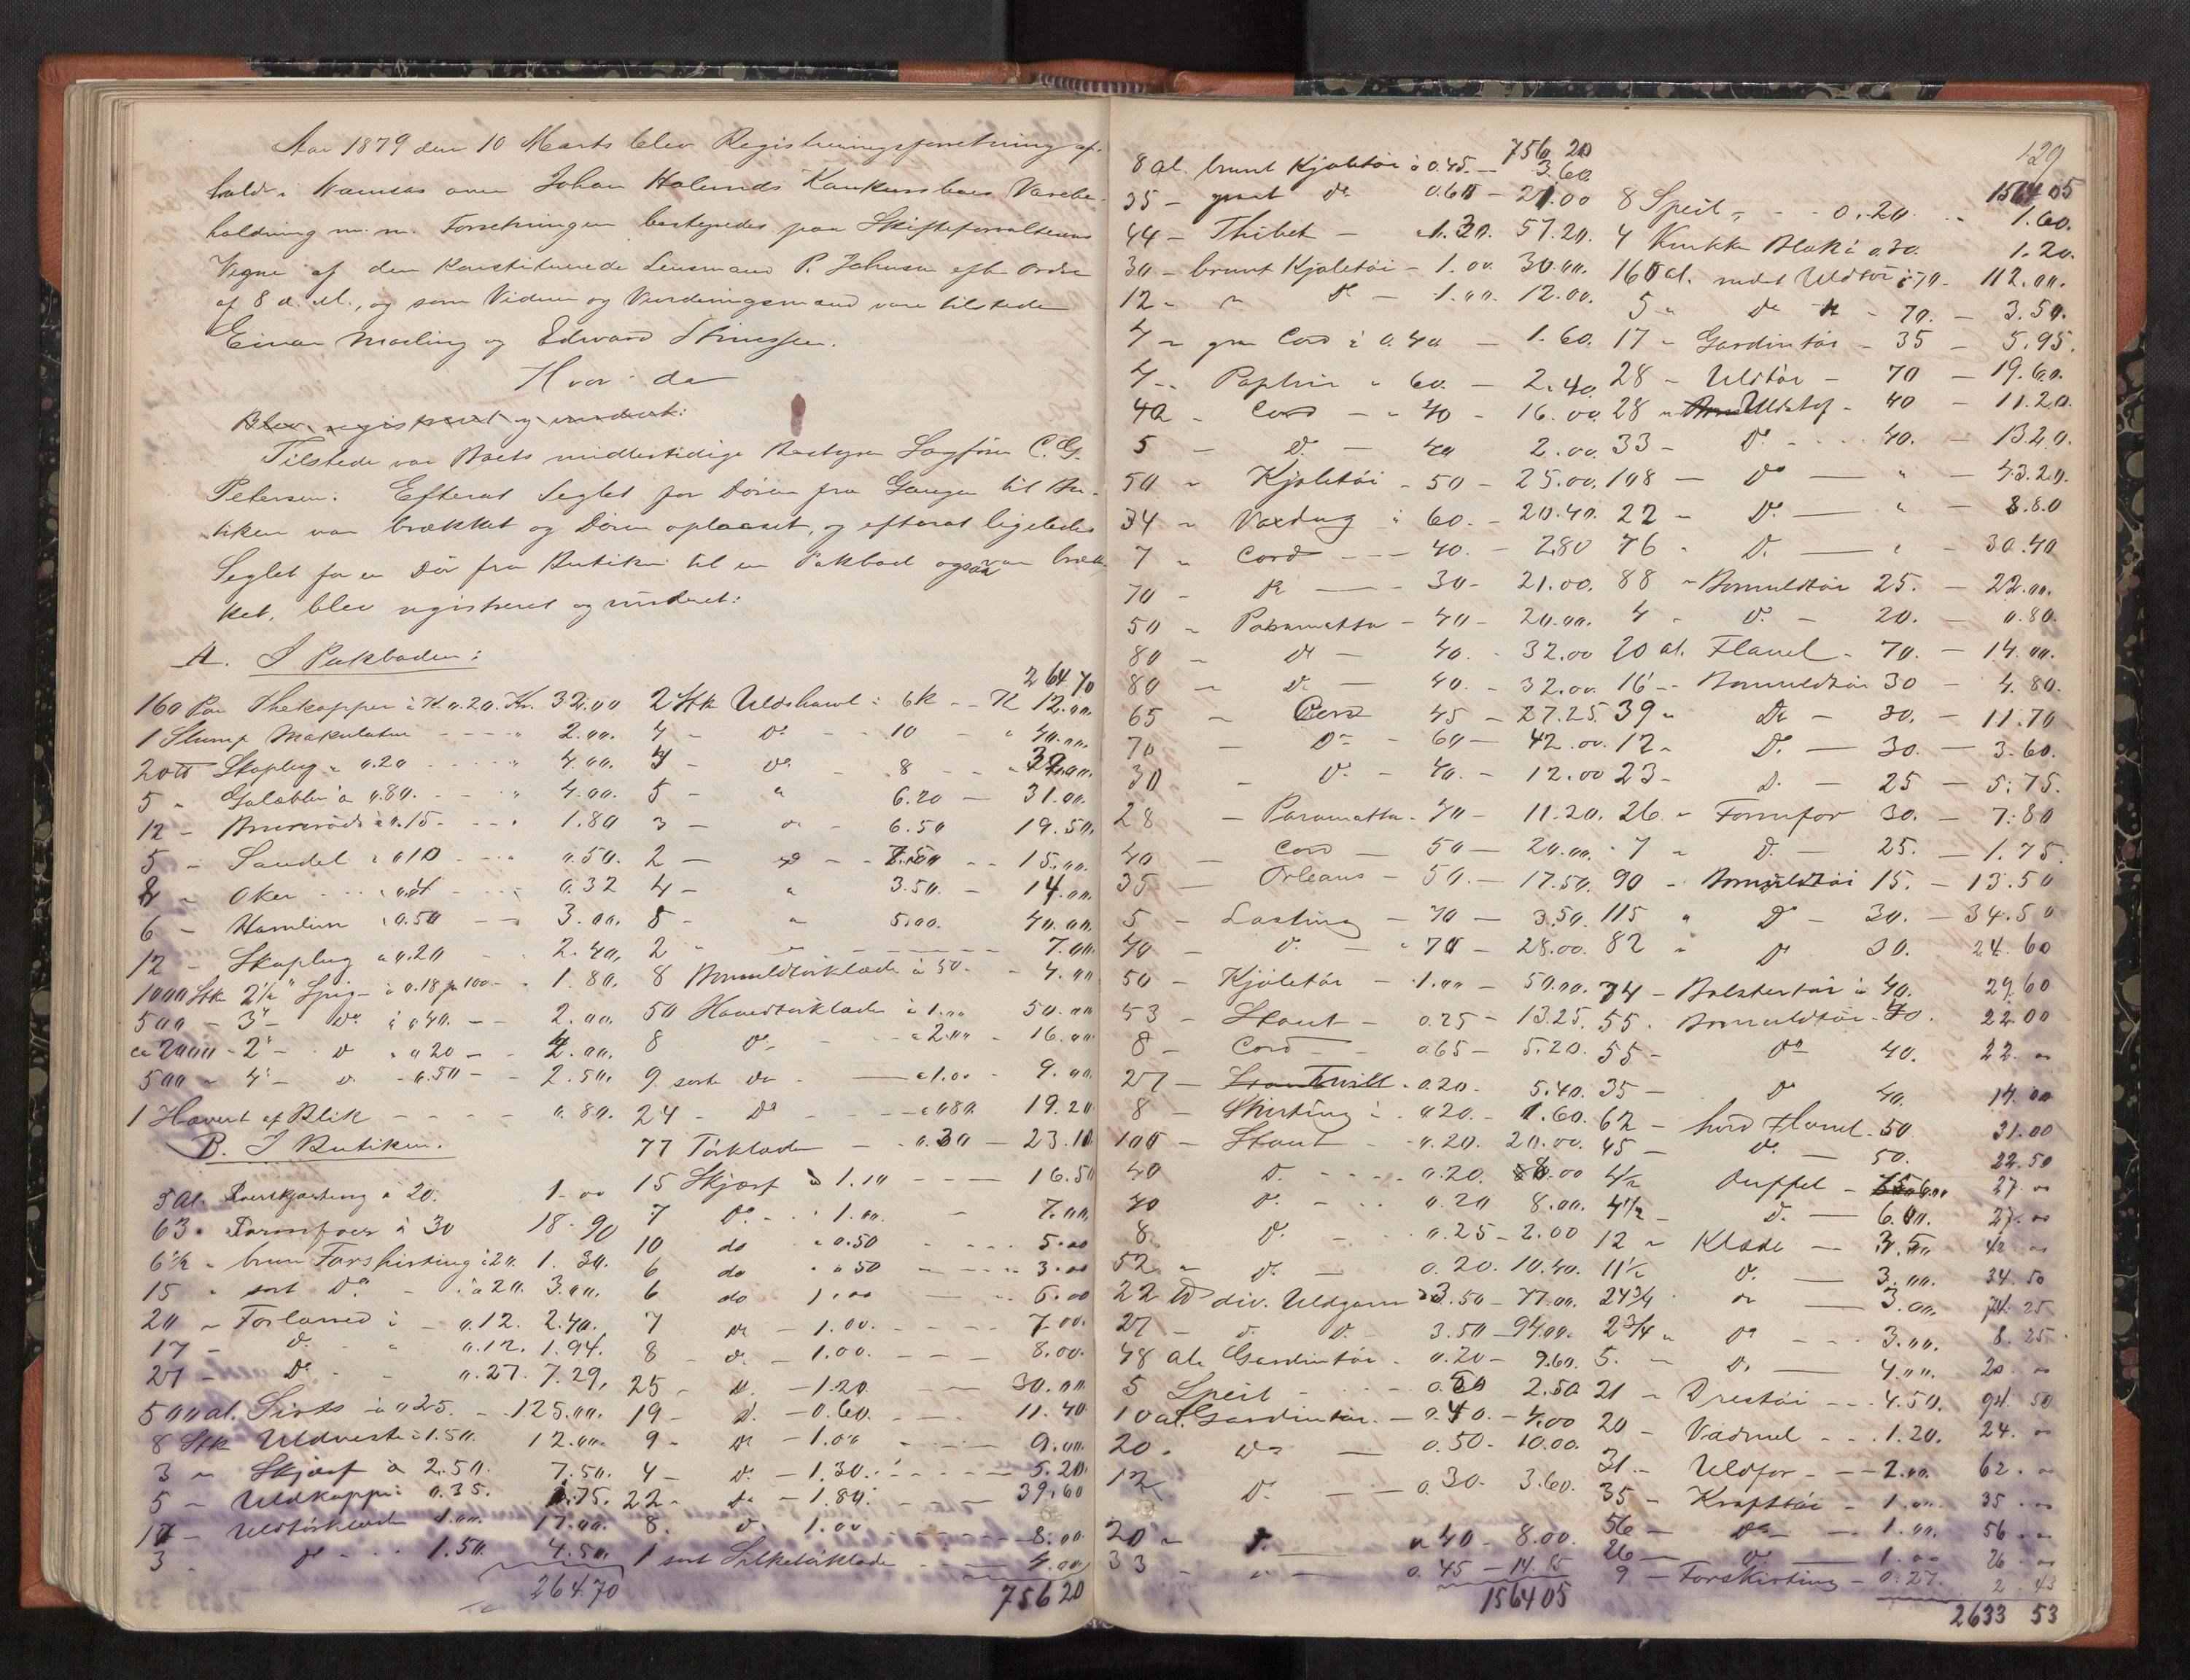 Aar 1879 den 10 Marts blev Registreringsforretning af-
holdt i Namsos over Johan Holunds Konkursboes Varebe-
holdning m. m. Forretningen bestyredes paa Skifteforvalterens
Vegne af den konstituerede Lensmand P. Johnsen efter Ordre
af 8 d. M., og som Vidner og Vurderingsmænd vare tilstede
Einar Morling og Edvard
Hvor da
Blev registreret og vurderet:
Tilstede var Boets midlertidige Bestyrer Sagfører C. G.
Petersen. Efterat Seglet for Døren fra Gangen til Bu-
tiken var brækket og Døren oplaaset, og efterat ligeledes
Seglet for en Dør fra Butiken til en Pakbod ogsaa var bræk-
ket, blev registreret og vurderet:
A. I Pakboden:
160 Par Thekopper à K 0.20. Kr. 32.00
1 Slump Makulatur 2.00.
20 ℔ Skoplug " 0.20 4.00.
5 " à 0.80. 4.00.
12 - à 0.15. 1.80
5 - Sandel à 0.10 0.50.
8 " Oker 0.4 0.32
6 - 0.50 3.00.
12 - Skoplug à 0.20 2.40.
1000 Stk 2½" Spig. à 0.18 pr 100 1.80.
500 - 3" - Do à 0.40. 2.00.
ca 2000 - 2" - D à 0.20 4.00.
500 " 4" - D. 0.50 2.50.
1 Hævert af Blik 0.80.
B. I Butiken.
5 Al. à 20. 1.00
63 " Formfoer à 30 18.90
6½ " brun Forskirting à 20. 1.30.
15 " sort Do à 20. 3.00.
20 " Forlærred à 0.12. 2.40.
17 - D. 0.12. 1.94.
27 - Do 0.27. 7.29.
500 al. Sirts à 0.25. 125.00.
8 Stk Uldveste à 1.50. 12.00.
3 " Skjærf à 2.50. 7.50.
5 - Uldkapper 0.35. 1.75.
17 - Uldtørklæder 1.00. 17.00.
3 Do 1.50. 4.50.
264.70
264 70
2 Stk Uldshawl à 6 K K 12.00.
4 - Do 10 40.00.
4 - Do 8 32.00.
5 - " 6.20 31.00.
3 - 6.50 19.50.
2 - 7.50 15.00.
4 - " 3.50. 14.00.
8 - " 5.00. 40.00.
2 " 7.00.
8 Bomuldtørklæde à 50. 4.00
50 Hovedtørklæder à 1.00 50.00
8 Do à 2.00 16.00
9 sorte Do à 1.00 9.00
24 - Do à 0.80 19.20
77 Tørklæder 0.30 23.10
15 Skjærf à 1.10 16.50
7 Do 1.00. 7.00.
10 do à 0.50 5.00
6 do " 0.50 3.00
6 do 1.00 6.00
7 Do 1.00. 7.00.
8 - D. 1.00. 8.00.
25 - D. 1.20 30.00
19 - D. 0.60. 11.40
9 - Do 1.00 9.00
4 - D. 1.30. 5.20.
22 - Do 1.80. 39.60
8. D. 1.00 8.00
1 sort Silketørklæde 4.00
756 20
129
756 20
8 Al. brunt Kjoletøi à 0.45. 3.60.
35 - graat Do 0.60 - 21.00
44 - Thibet - à 1.30. 57.20.
30 - brunt Kjoletøi - 1.00 30.00.
12 - " Do - 1.00. 12.00.
4 " Cord à 0.40 - 1.60.
4 " Poplin " 60. - 2.40.
40 - Cord - " 40 - 16.00
5 - D. - 40 2.00.
50 " Kjoletøi - 50 - 25.00.
34 " Voxdug à 60. - 20.40.
7 " Cord 40. - 2.80
70 - Do 30 - 21.00.
50 " Paramatta - 40 - 20.00.
80 - Do 40. 32.00
80 " D. 40. - 32.00.
65 " Cord 45 - 27.25.
70 - Do - 60 - 42.00.
30 - D. - 40. - 12.00
28 - Paramatta - 40 - 11.20.
40 - Cord - 50 - 20.00.
35 - Orleans - 50. - 17.50.
5 - Lasting - 70 - 3.50.
40 - D. - 70 - 28.00.
50 - Kjoletøi - 1.00 - 50.00.
53 - Stout - 0.25 - 13.25.
8 - Cord 0.65 - 5.20.
27 - Twill - 0.20. 5.40.
8 - Skirting à 0.20. - 1.60.
100 - Stout 0.20. 20.00.
40 D. 0.20. 8.00
40 D. 0.20 8.00.
8 D. 0.25 - 2.00
52 " D. 0.20. 10.40.
22 ℔ div. Uldgarn 3.50 - 77.00.
27 - D. D. 3.50 - 94.00.
48 al. Gardintøi 0.20 - 9.60.
5 Speil 0.50 2.50
10 al. Gardintøi 0.40. - 4.00
20. Do 0.50 - 10.00.
12 D. 0.30. 3.60.
20 " D. 0.40 - 8.00.
33 " 0.45 - 14.85
1564 05
1564 05
8 Speil 0.20. 1.60.
4 Krukker Blæk à 0.30. 1.20.
160 al. rødt Uldtøi à 70. 112.00.
5 " Do 70. - 3.50.
17 - Gardintøi - 35 - 5.95.
28 - Uldtøi - 70 - 19.60.
28 " Uldstof 40 - 11.20.
33 - Do 40. - 13.20.
108 - Do " - 43.20.
22 " D. " - 8.80
76 " D. " 30.40
88 " Bomuldtøi 25. - 22.00.
4 " D. - 20. - 0.80.
20 al. Flanel - 70. - 14.00.
16 " Bomuldtøi 30 - 4.80.
39 " Do - 30. - 11.70
12 " D. - 30. - 3.60.
23 - D. - 25 - 5.75.
26 " Formfor 30. - 7.80
7 " D. - 25. - 1.75.
90 - Bomuldtøi 15. - 13.50
115 " D - 30. - 34.50
82 " Do 30. 24.60
74 - Bolstertøi à 40. 29.60
55. Bomuldtøi 40. 22.00
55 - Do 40. 22.00
35 - D 40. 14.00
62 - hvid Flanel 50. 31.00
45 - D. 50. 22.50
4½ Duffel - 6.00 27.00
4½ - D. - 6.00. 27.00
12 " Klæde - 3.50 42.00
11½ D. - 3.00. 34.50
24¾ " 3.00. 74.25
2¾ " Do 3.00. 8.25
5. - D. - 4.00. 20.00
21 - Drestøi 4.50. 94.50
20 - Vadmel 1.20. 24.00
31 - Uldfor - 2.00. 62.00
35 - Krafttøi - 1.00. 35.00
56 - Do - 1.00. 56.00
26 - D. - 1.00 26.00
9 - Forskirting - 0.27. 2.43
2633 53